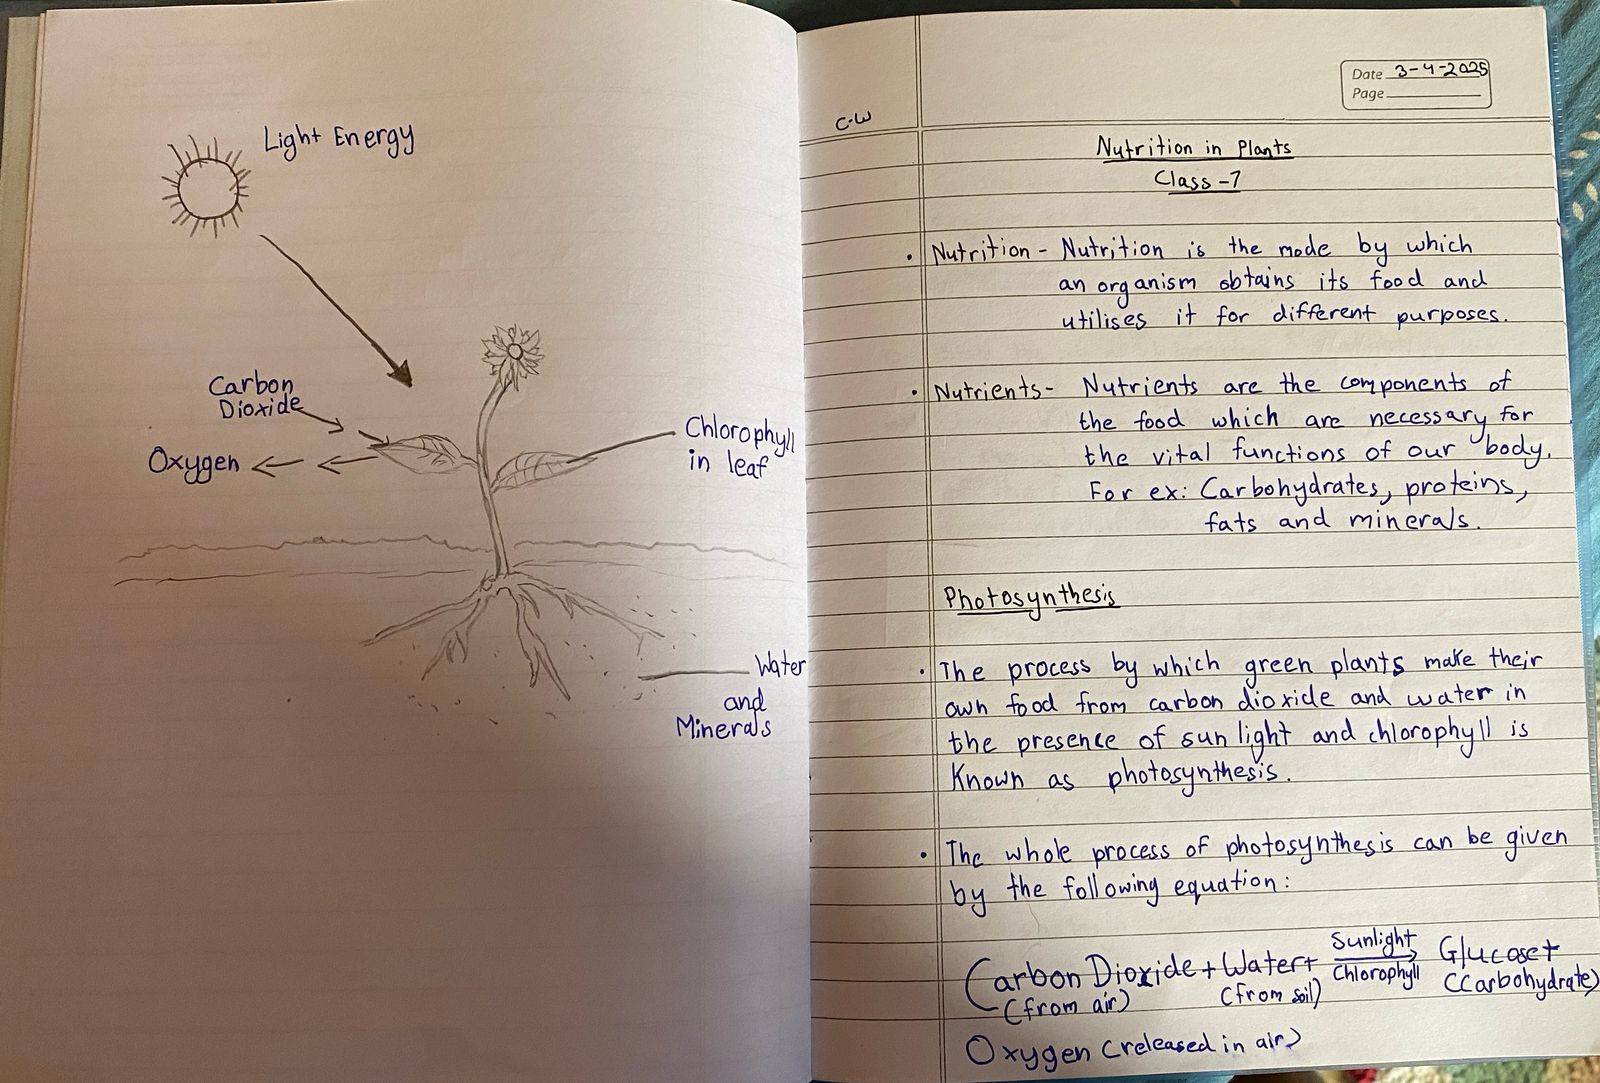 Light Energy
Carbon
Dioxide
Oxygen
Chlorophyll
in leaf
Water
and
Minerals
Date 3-4-2025
Page
C.W
Nutrition in Plants
Class-7
• Nutrition - Nutrition is the mode by which
an organism obtains its food and
utilises it for different purposes.
• Nutrients - Nutrients are the components of
the food which are necessary for
the vital functions of our body.
For ex: Carbohydrates, proteins,
fats and minerals.
Photosynthesis
• The process by which green plants make their
own food from carbon dioxide and water in
the presence of sun light and chlorophyll is
Known as photosynthesis.
• The whole process of photosynthesis can be given
by the following equation:
Sunlight
Carbon Dioxide + Water + Glucose +
Chlorophyll
(from air) (from soil) (Carbohydrate)
Oxygen (released in air)